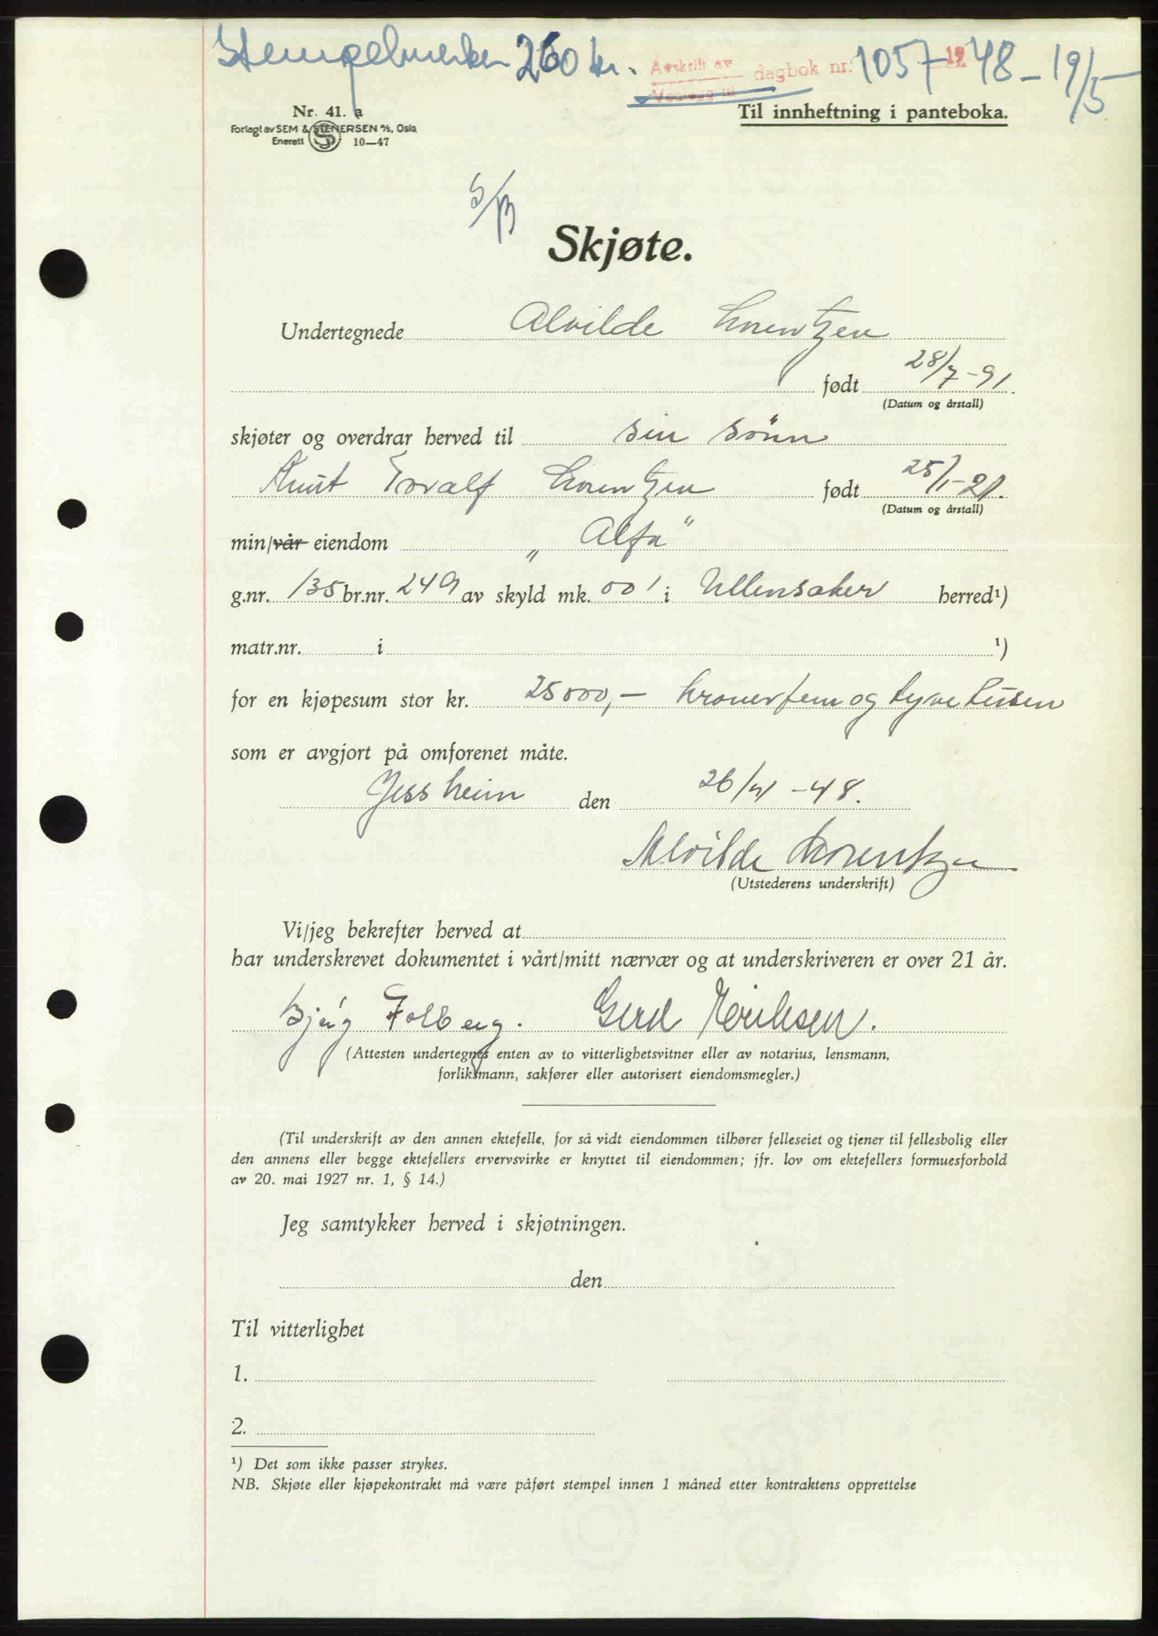 Stempelmerker 260 kr. Avskrift av dagbok nr. 1057 - 1948 - 19/5
Nr. 41. a
Forlagt av SEM & STENERSEN A/S, Oslo
Enerett 10—47
Til innheftning i panteboka.
Skjøte.
Undertegnede Alvilde Lorentzen
født 28/7-91.
(Datum og årstall)
skjøter og overdrar herved til sin sønn
Knut Toralf Lorentzen født 25/1-21.
(Datum og årstall)
min/vår eiendom „Alfa"
g.nr. 135 br.nr. 249 av skyld mk. 001 i Ullensaker herred¹)
matr.nr. i ¹)
for en kjøpesum stor kr. 25000,— kroner fem og tyve tusen
som er avgjort på omforenet måte.
Jessheim den 26/4-48.
Alvilde Lorentzen
(Utstederens underskrift)
Vi/jeg bekrefter herved at
har underskrevet dokumentet i vårt/mitt nærvær og at underskriveren er over 21 år.
Folberg. Gerd Eriksen.
(Attesten undertegnes enten av to vitterlighetsvitner eller av notarius, lensmann,
forliksmann, sakfører eller autorisert eiendomsmegler.)
(Til underskrift av den annen ektefelle, for så vidt eiendommen tilhører felleseiet og tjener til fellesbolig eller
den annens eller begge ektefellers ervervsvirke er knyttet til eiendommen; jfr. lov om ektefellers formuesforhold
av 20. mai 1927 nr. 1, § 14.)
Jeg samtykker herved i skjøtningen.
den
Til vitterlighet
1.
2.
¹) Det som ikke passer strykes.
NB. Skjøte eller kjøpekontrakt må være påført stempel innen 1 måned etter kontraktens opprettelse